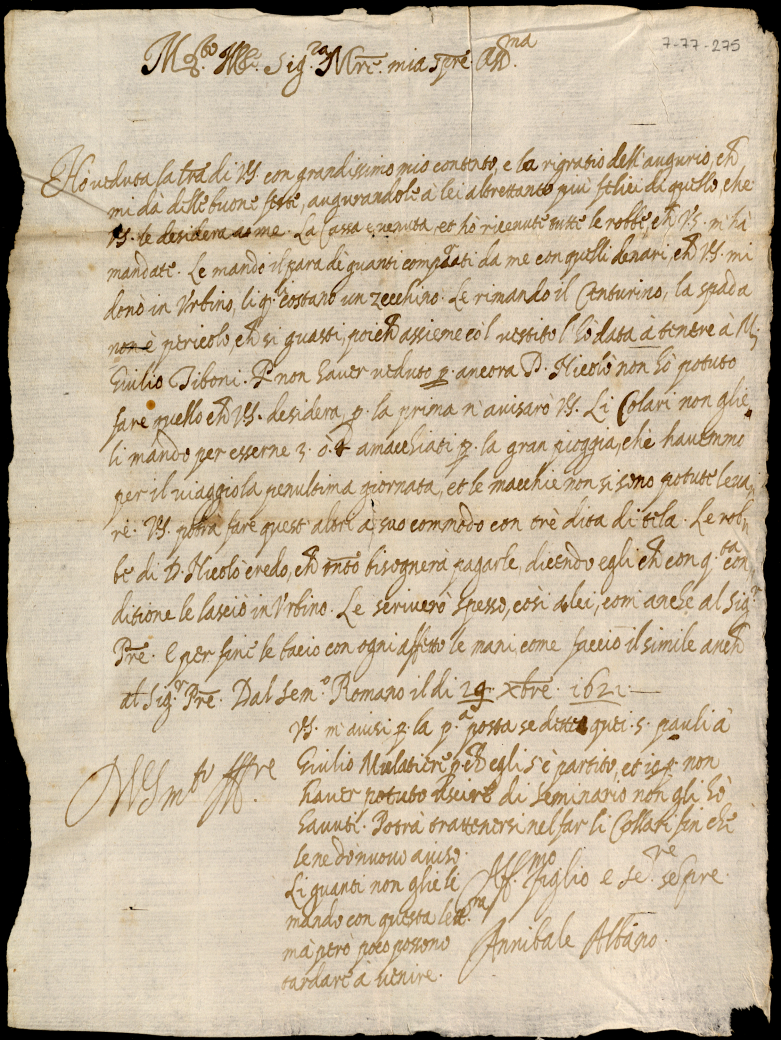 7-77-275
M.to Ill.re Sig.ra Mre. mia sprē Oss.ma
Hò veduta la lrā di VS. con grandissimo mio contento, e la rigratio dell'augurio, ch̄
mi da delle buone feste, augurandole à lei altrettanto più felici di quello, che
VS. le desidera à me. La Cassa è venuta, et hò ricevute tutte le robbe, ch̄ VS. m'hà
mandate. Le mando il para de guanti comprati da me con quelli denari, ch̄ VS. mi
donò in Urbino, li q.li costano un zecchino. Le rimando il Centurino, la spada
non è pericolo, ch̄ si guasti, poich̄ assieme col vestito l'hò data à tenere à
Giulio Tiboni. P. non haver veduto p. ancora D. Nicolò non hò potuto
fare quello ch̄ VS. desidera, p. la prima n'avisarò VS. Li Colari non glie
li mando per esserne 3. ò 4 amacchiati p. la gran pioggia, che havemmo
per il viaggio la penultima giornata, et le macchie non si sono potute leva-
re. VS. potrà fare quest'altri à suo commodo con trè dita di tela. Le rob-
be di D. Nicolò credo, ch̄ bisognerà pagarle, dicendo egli ch̄ con q.ta con
ditione le lasciò in Urbino. Le scriverò spesso, così à lei, com'anche al Sig.r
Pre. e per fine le bacio con ogni affetto le mani, come faccio il simile anch̄
al Sig.r Pre. Dal Sem.o Romano il di 29. Xbre. 1621.
VS. m'avisi p. la p.a posta se dette quei .5. pauli à
Giulio Mulatiere p.ch̄ egli s'è partito, et io p. non
haver potuto uscire di Seminario non gli hò
havuti. Potrà trattenersi nel far li Collari fin che
le ne dò nuovo aviso.
Li guanti non glie li
mando con questa lett.ra
mà però poco possono
tardare à venire.
Aff.mo figlio e Se.re sempre
Annibale Albano.